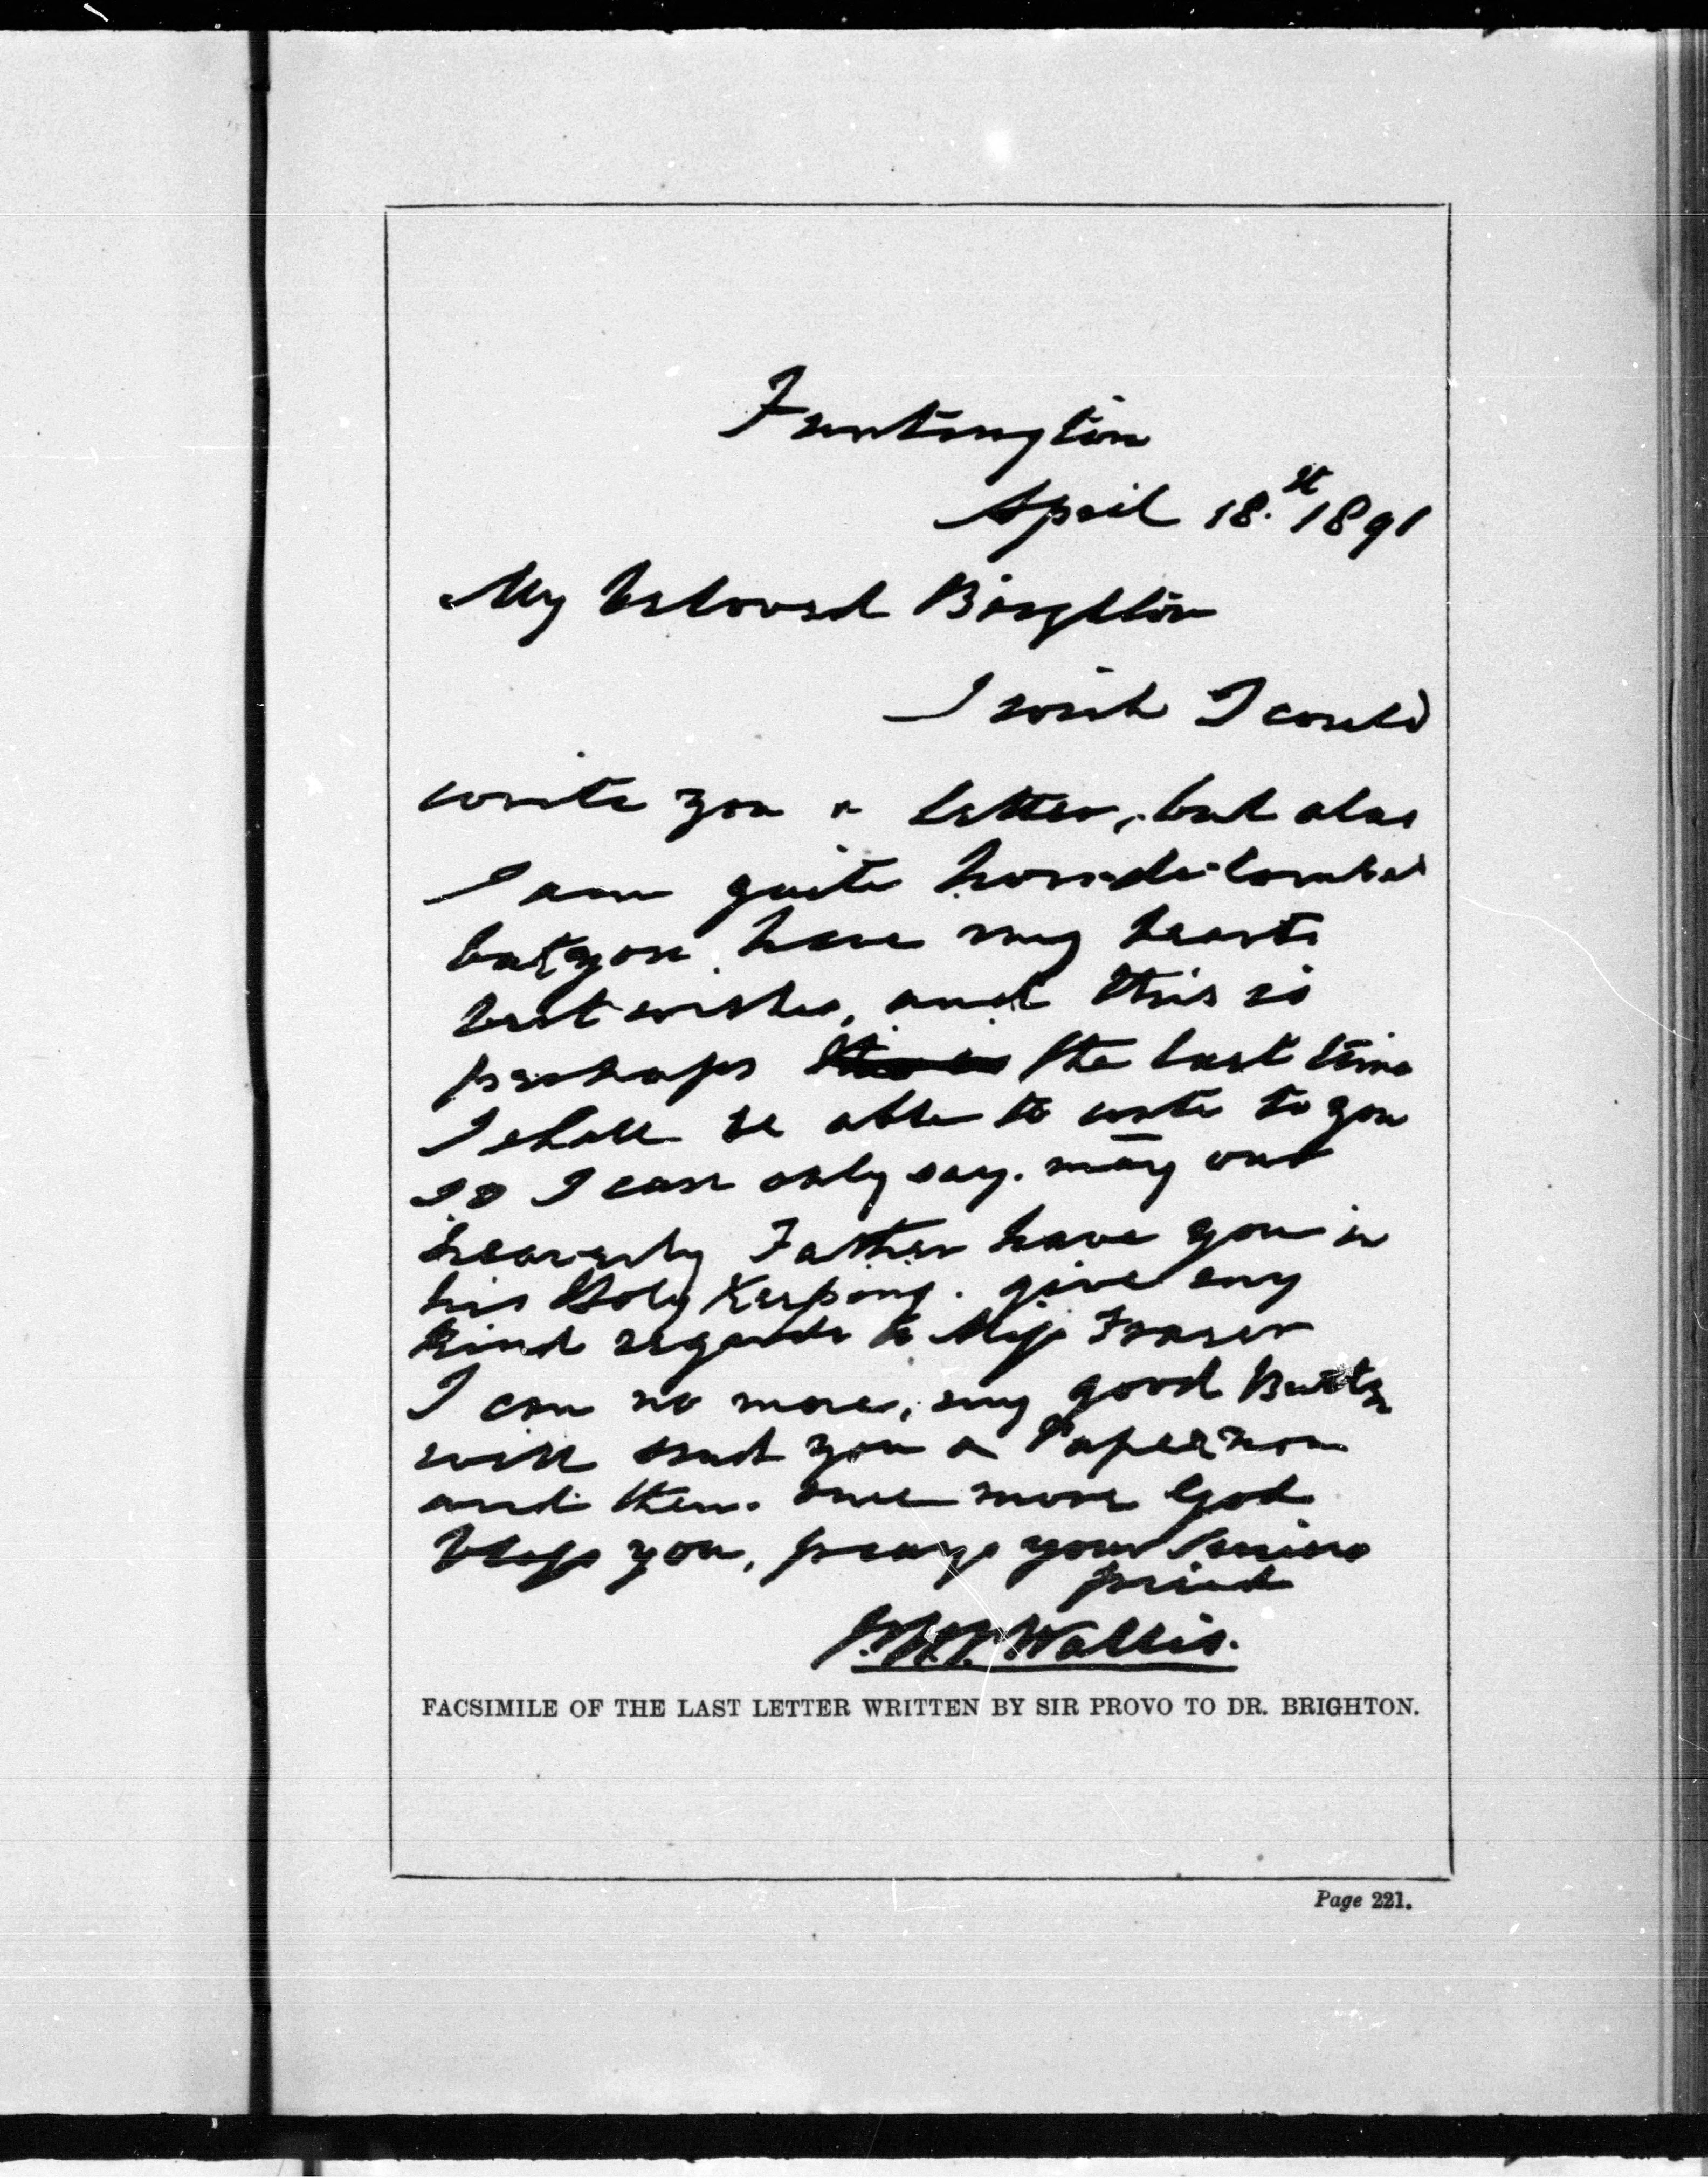 Funtington
April 18.st 1891
My beloved Brighton
I wish I could
write you a letter, but alas
I am quite hors-de-combat
but you have my hearts
best wishes, and this is
perhaps the last time
I shall be able to write to you
so I can only say. may our
heavenly Father have you in
his Holy Keeping. give my
kind regards to Miss Fraser
I can no more, my good
will send you a Paper now
and then. once more God
bless you, your
friend
P.W.P. Wallis.
FACSIMILE OF THE LAST LETTER WRITTEN BY SIR PROVO TO DR. BRIGHTON.
Page 221.